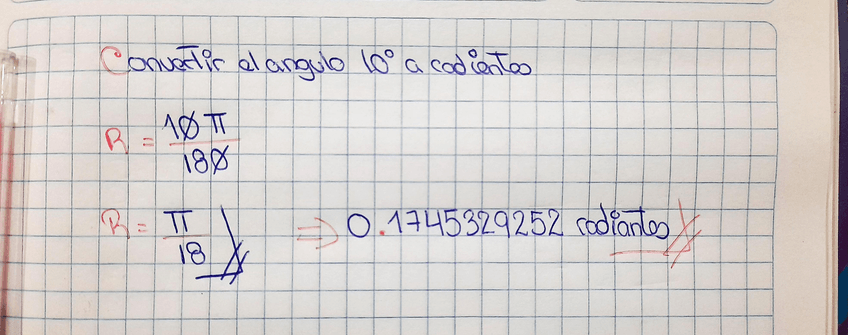 Convertir el angulo 10° a radiantes
R = 10π / 180
R = π / 18 ⇒ 0.1745329252 radiantes